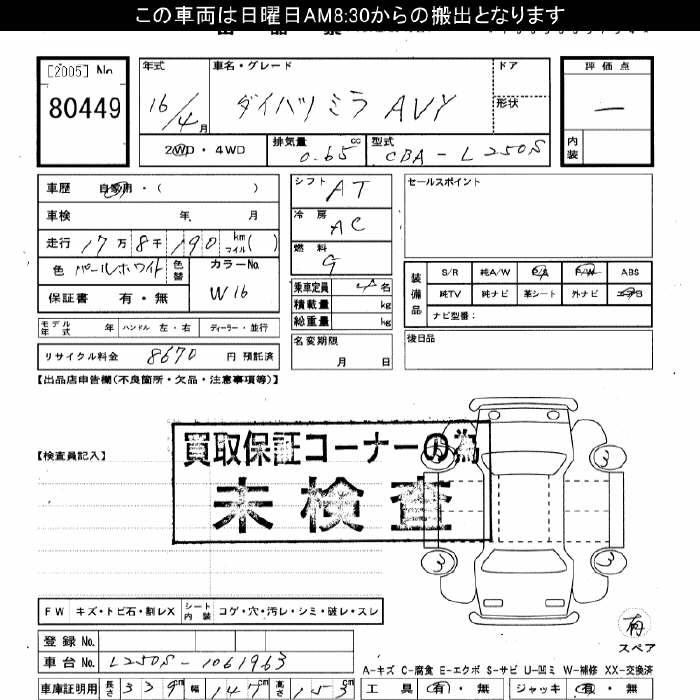 この車両は日曜日AM8:30からの搬出となります
[2005] No 年式 車名・グレード ドア 評価点
80449 16/4月 ダイハツミラ AVY 形状 一
2WD・4WD 排気量 0.65 cc 型式 CBA-L250S 内装
車歴 自家用・( ) シフト AT セールスポイント
車検 年 月 冷房 AC
走行 17万8千190 km マイル( ) 燃料 G
色 パールホワイト 色替 カラーNo. W16
保証書 有・無
乗車定員 4名
積載量 kg
総重量 kg
装備品 S/R 純A/W P/S P/W ABS
純TV 純ナビ 革シート 外ナビ エアB
ナビ型番:
モデル年式 年 ハンドル 左・右 ディーラー・並行
名変期限 月 日
後日品
リサイクル料金 8670 円 預託済
【出品店申告欄(不良箇所・欠品・注意事項等)】
【検査員記入】
買取保証コーナーの為
未検査
3
3
3
FW キズ・トビ石・割レX シート内装 コゲ・穴・汚レ・シミ・破レ・スレ
有
スペア
登録 No.
車台 No. L250S-1061963
A-キズ C-腐食 E-エクボ S-サビ U-凹ミ W-補修 XX-交換済
車庫証明用 長さ 339cm 幅 147cm 高さ 153cm 工具 有・無 ジャッキ 有・無